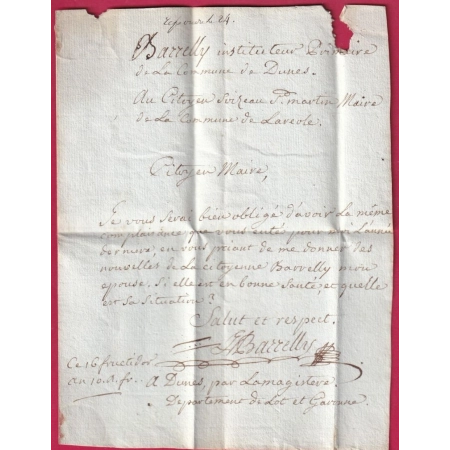 Repondu le 24.
Barrelly instituteur Primaire
de La Commune de Dunes.
Au Citoyen Soizeau St. martin Maire
de La Commune de Lareole.
Citoyen Maire,
Je vous serai bien obligé d'avoir La même
complaisance que vous eutes pour moi L'année
derniere, en vous priant de me donner des
nouvelles de La citoyenne Barrelly mon
epouse. Si elle est en bonne santé, et quelle
est sa situation?
Salut et respect.
Barrelly
Ce 16 fructidor
an 10. R. fr. A Dunes, par Lamagistere
Departement de Lot et Garonne.